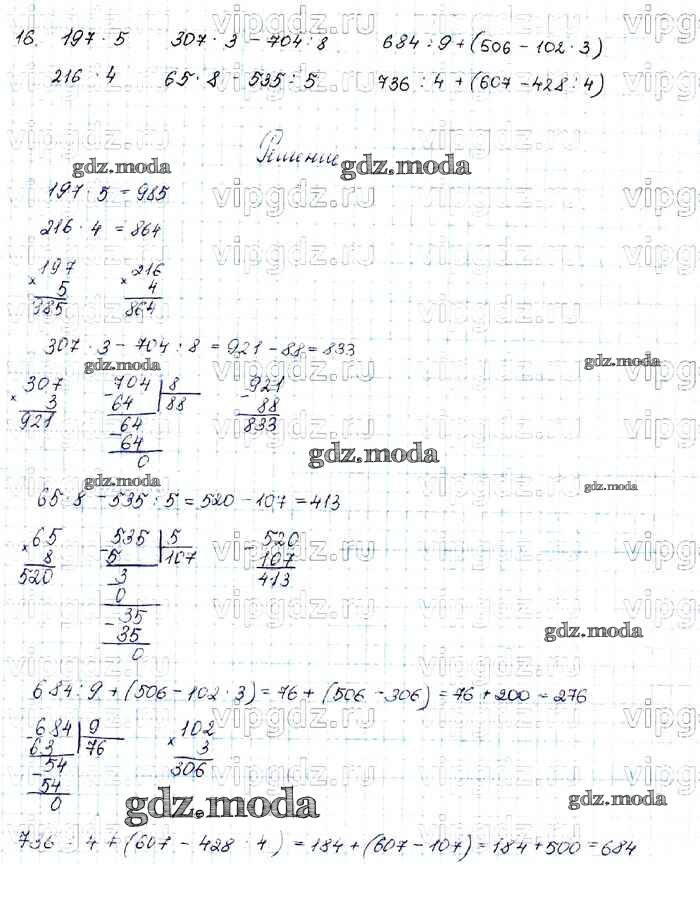 16. 197 · 5 307 · 3 - 704 : 8 684 : 9 + (506 - 102 · 3)
216 · 4 65 · 8 - 535 : 5 736 : 4 + (607 - 428 : 4)
Решение
gdz.moda gdz.moda
197 · 5 = 985
216 · 4 = 864
197 216
× 5 × 4
985 864
307 · 3 - 704 : 8 = 921 - 88 = 833
gdz.moda gdz.moda gdz.moda
307 - 704 | 8 - 921
× 3 64 | 88 88
921 - 64 833
64
0
gdz.moda
65 · 8 - 535 : 5 = 520 - 107 = 413
gdz.moda gdz.moda gdz.moda
65 - 535 | 5 - 520
× 8 5 | 107 107
520 3 413
0
- 35
35
0
gdz.moda
684 : 9 + (506 - 102 · 3) = 76 + (506 - 306) = 76 + 200 = 276
- 684 | 9 102
63 | 76 × 3
- 54 306
54
0
gdz.moda gdz.moda
736 : 4 + (607 - 428 · 4) = 184 + (607 - 107) = 184 + 500 = 684